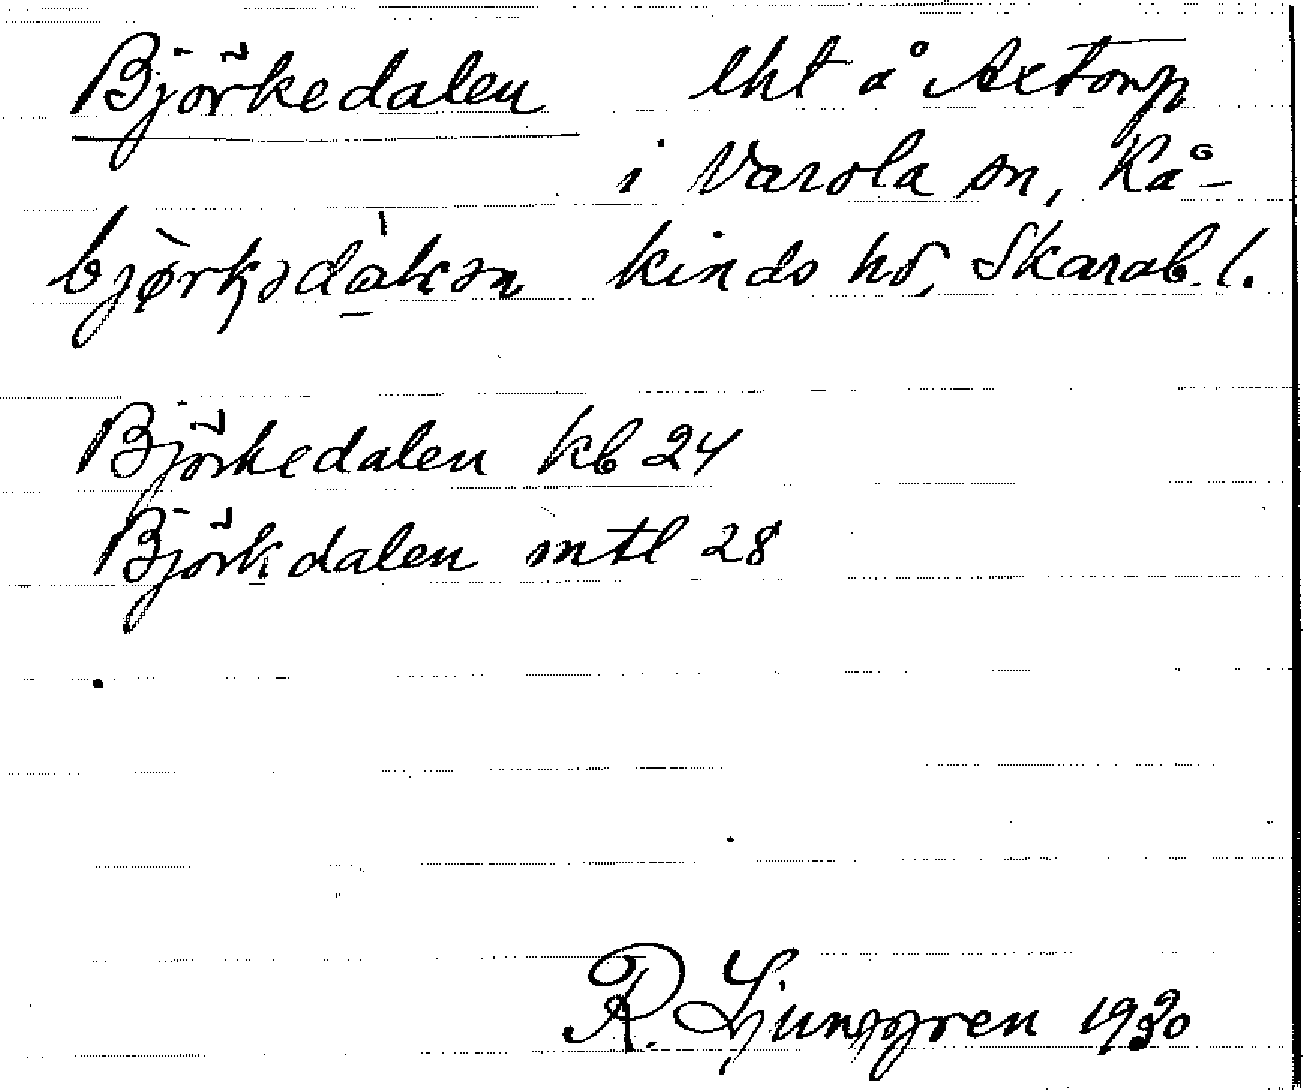 Björkedalen lht å Axtorp
i Varola sn, Kå-
kinds hd, Skarab. l.
Björkedalen kb 24
Björkdalen mtl 28
R. Ljunggren 1930